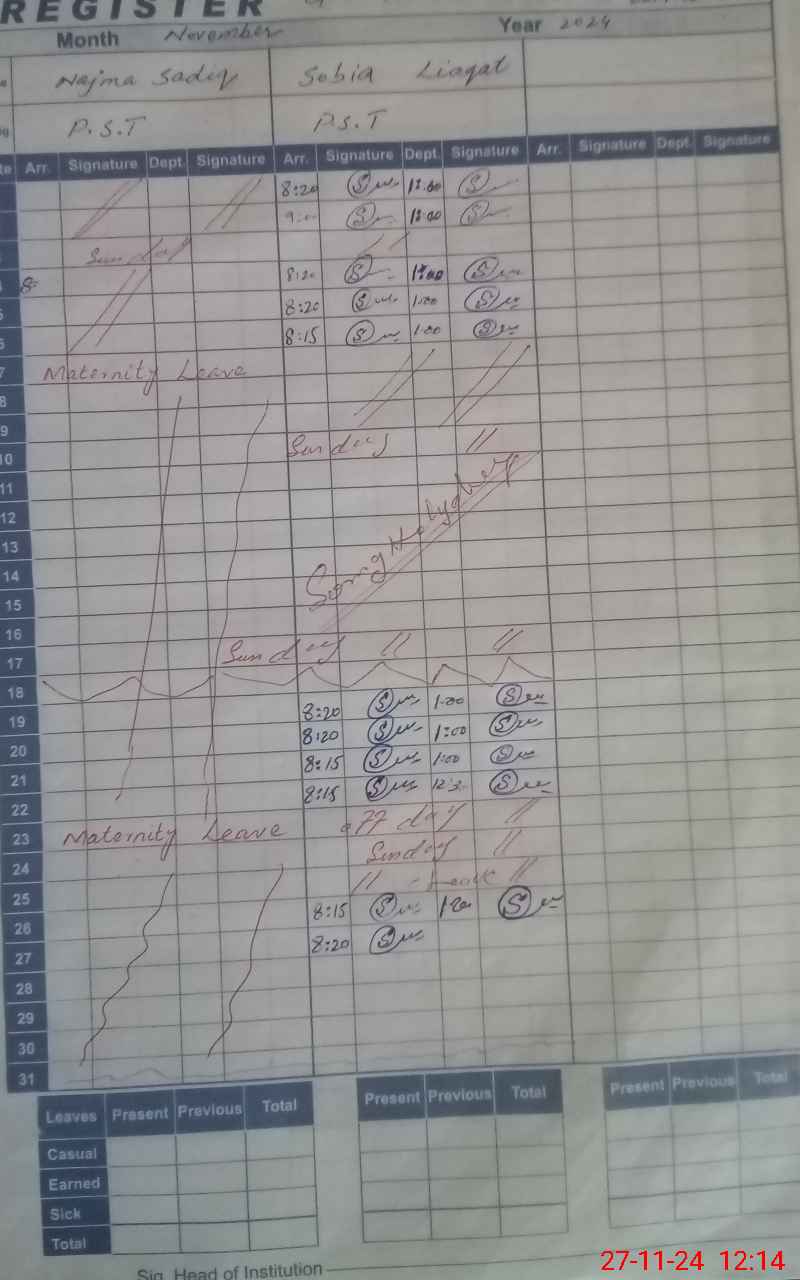 REGISTER
Month November Year 2024
Najma Sadiq Sobia Liaqat
P.S.T P.S.T
Arr. Signature Dept. Signature Arr. Signature Dept. Signature Arr. Signature Dept. Signature
8:20
9:00
Sunday //
8:20
8:20 1:00
8:15 1:00
7 Maternity Leave
8
9
10 Sunday //
11
12
13
14
15
16
17 Sunday // //
18
8:20 1:00
19 8:20 1:00
20 8:15 1:00
21 8:15
22 day //
23 Maternity Leave
Sunday //
24 // Leave //
25 8:15
26 8:20
27
28
29
30
31
Leaves Present Previous Total Present Previous Total Present Previous Total
Casual
Earned
Sick
Total
Sig. Head of Institution
27-11-24 12:14